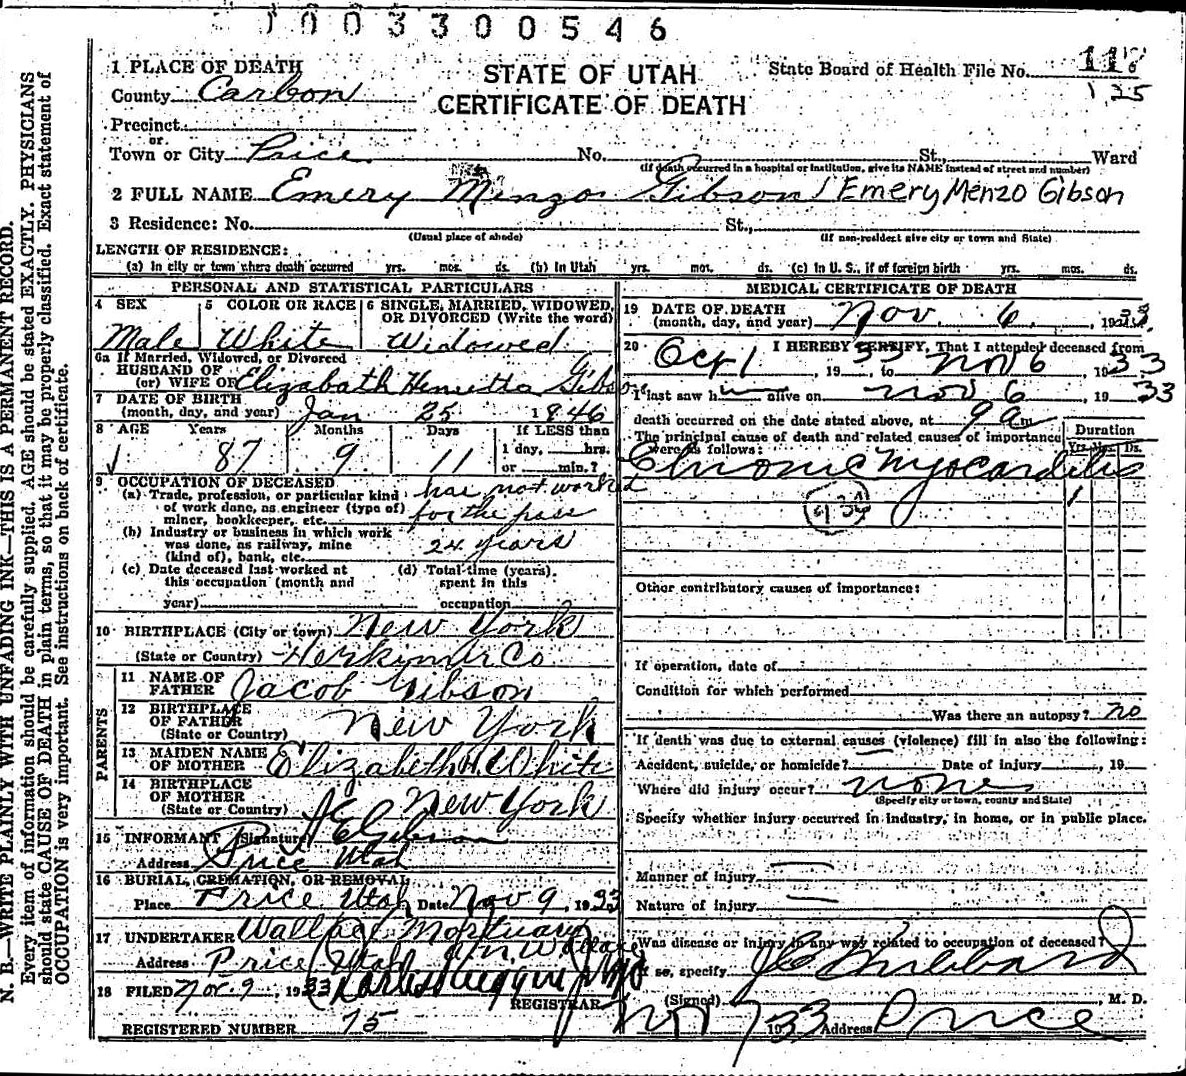 1003300546
1 PLACE OF DEATH
STATE OF UTAH
CERTIFICATE OF DEATH
State Board of Health File No. 118
125
County Carbon
Precinct
or
Town or City Price No. St., Ward
(If death occurred in a hospital or institution, give its NAME instead of street and number)
2 FULL NAME Emery Minzo Gibson / Emery Menzo Gibson
3 Residence: No. St.,
(Usual place of abode) (If non-resident give city or town and State)
LENGTH OF RESIDENCE:
(a) In city or town where death occurred yrs. mos. ds. (b) In Utah yrs. mos. ds. (c) In U. S., if of foreign birth yrs. mos. ds.
PERSONAL AND STATISTICAL PARTICULARS
4 SEX 5 COLOR OR RACE 6 SINGLE, MARRIED, WIDOWED, OR DIVORCED (Write the word)
Male White Widowed
6a If Married, Widowed, or Divorced
HUSBAND OF
(or) WIFE OF Elizabath Henretta Gibson
7 DATE OF BIRTH
(month, day, and year) Jan 25 1846
8 AGE Years Months Days If LESS than
87 9 11 1 day, hrs.
or min.?
9 OCCUPATION OF DECEASED
(a) Trade, profession, or particular kind of work done, as engineer (type of) miner, bookkeeper, etc. has not worked for the pass
(b) Industry or business in which work was done, as railway, mine (kind of), bank, etc. 24 years
(c) Date deceased last worked at this occupation (month and year)
(d) Total time (years) spent in this occupation
10 BIRTHPLACE (City or town) New York
(State or Country) Herkimer Co
PARENTS
11 NAME OF FATHER Jacob Gibson
12 BIRTHPLACE OF FATHER (State or Country) New York
13 MAIDEN NAME OF MOTHER Elizabeth H. White
14 BIRTHPLACE OF MOTHER (State or Country) New York
15 INFORMANT (Signature) J E Gibson
Address Price Utah
16 BURIAL, CREMATION, OR REMOVAL
Place Price Utah Date Nov 9, 1933
17 UNDERTAKER Wallace Mortuary
Address Price Utah A. N. Wallace
18 FILED Nov. 9, 1933
REGISTRAR
REGISTERED NUMBER 75
MEDICAL CERTIFICATE OF DEATH
19 DATE OF DEATH
(month, day, and year) Nov. 6, 1933.
20 I HEREBY CERTIFY, That I attended deceased from
Oct 1, 1933 to Nov 6, 1933
I last saw h alive on Nov 6, 1933
death occurred on the date stated above, at 9 am
The principal cause of death and related causes of importance were as follows:
Duration
Yrs. Mos. Ds.
Chronic Myocarditis
1
Other contributory causes of importance:
If operation, date of
Condition for which performed
Was there an autopsy? no
If death was due to external causes (violence) fill in also the following:
Accident, suicide, or homicide? Date of injury, 19
Where did injury occur? none
(Specify city or town, county and State)
Specify whether injury occurred in industry, in home, or in public place.
Manner of injury
Nature of injury
Was disease or injury in any way related to occupation of deceased?
If so, specify
(Signed) J C Hubbard, M. D.
Nov 7 1933 Address Price
N. B.—WRITE PLAINLY WITH UNFADING INK—THIS IS A PERMANENT RECORD.
Every item of information should be carefully supplied. AGE should be stated EXACTLY. PHYSICIANS
should state CAUSE OF DEATH in plain terms, so that it may be properly classified. Exact statement of
OCCUPATION is very important. See instructions on back of certificate.